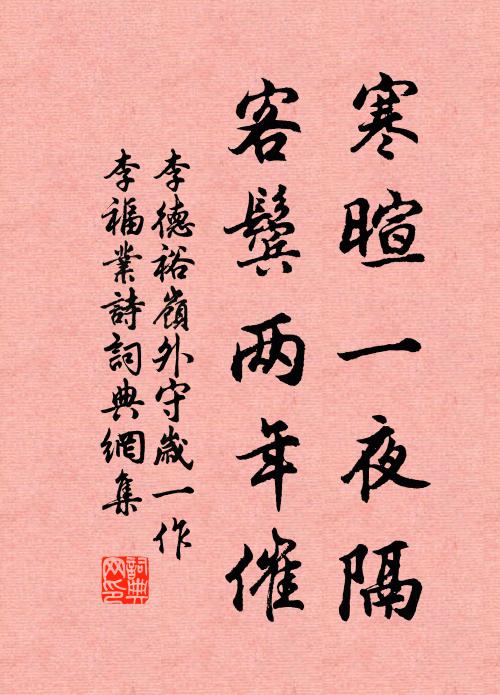 寒暄一夜隔
客鬓两年催
李德裕嶺外守歲一作
李福業詩詞典網集
詞典网印